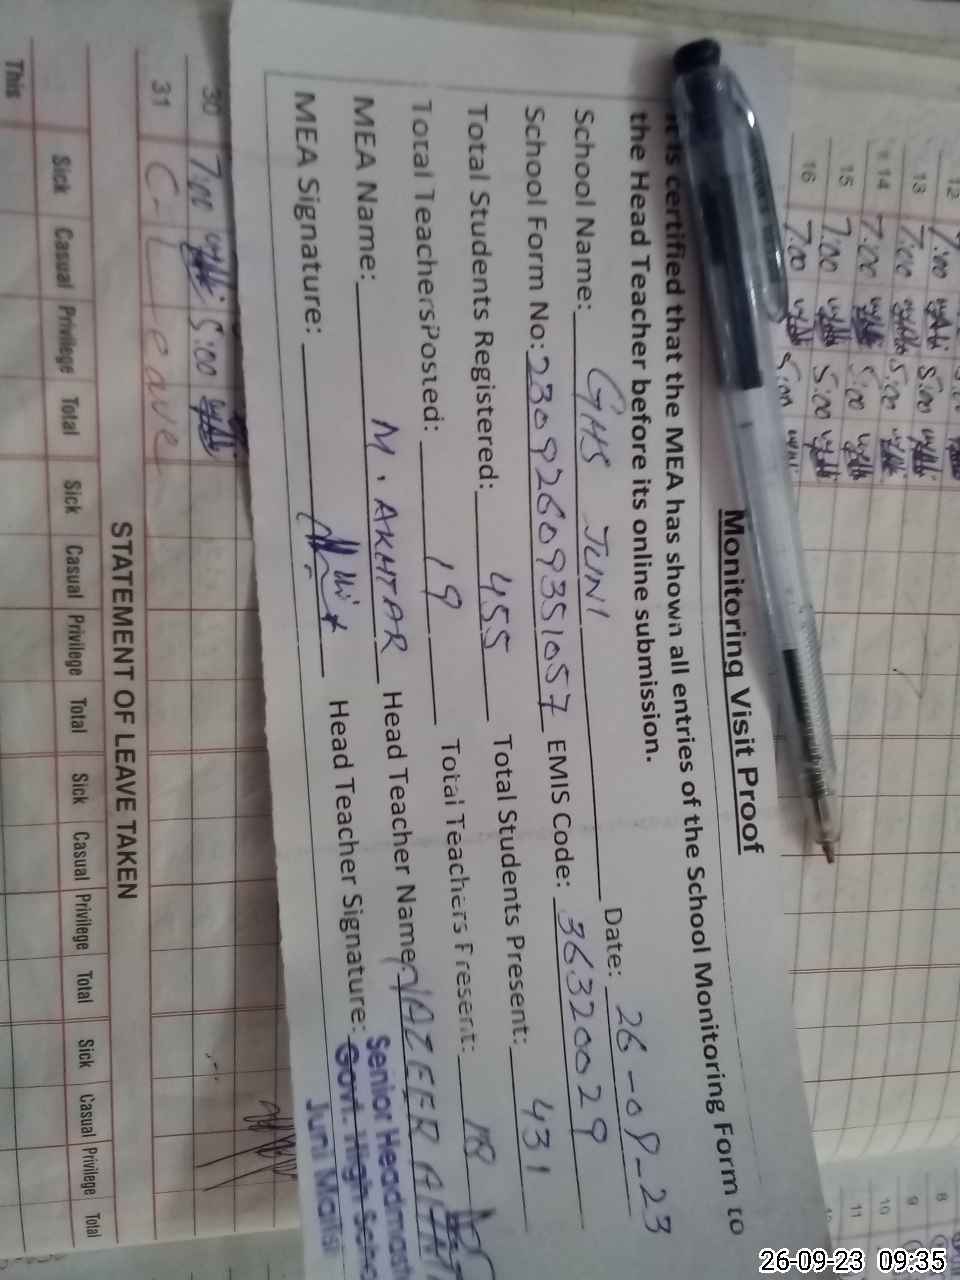 Monitoring Visit Proof
It is certified that the MEA has shown all entries of the School Monitoring Form to
the Head Teacher before its online submission.
School Name: GHS JUNI Date: 26-09-23
School Form No: 23092609351057 EMIS Code: 36320029
Total Students Registered: 455 Total Students Present: 431
Total Teachers Posted: 19 Total Teachers Present: 18
MEA Name: M. AKHTAR Head Teacher Name
MEA Signature: Head Teacher Signature:
Senior Headmast
Govt. High Scho
Juni Mailsi
12 7:00 5:00
13 7:00 5:00
14 7:00 5:00
15 7:00 5:00
16 7:00 5:00
30 7:00 5:00
31 C-Leave
STATEMENT OF LEAVE TAKEN
Sick Casual Privilege Total Sick Casual Privilege Total Sick Casual Privilege Total Sick Casual Privilege Total
This
8
9
10
11
26-09-23 09:35